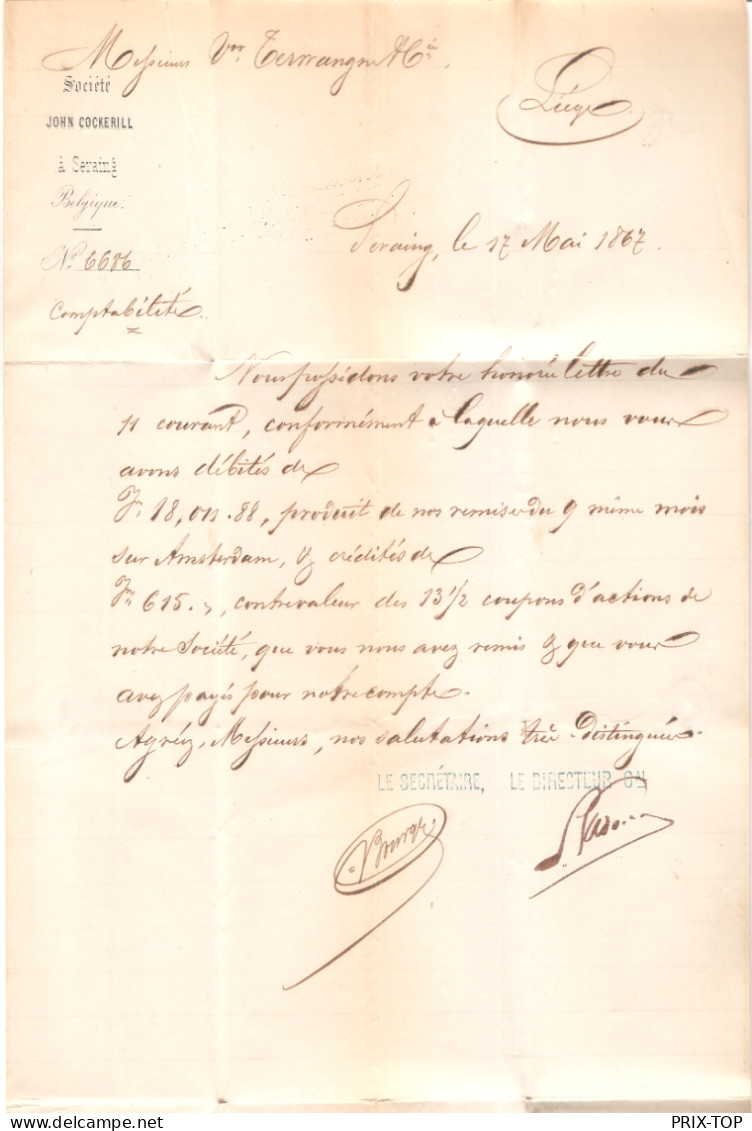 Messieurs Vor Terwangne & Cie.
Liége.
Société
JOHN COCKERILL
à Seraing
Belgique.
No. 6686
Comptabilité.
Seraing, le 17 Mai 1867.
Nous possédons votre honorée lettre du
11 courant, conformément à laquelle nous vous
avons débités de
Fr. 18,011.88, produit de nos remises du 9 même mois
sur Amsterdam, & crédités de
Fr. 615.-, contrevaleur des 13 1/2 coupons d'actions de
notre Société, que vous nous avez remis & que vous
avez payés pour notre compte.
Agréez, Messieurs, nos salutations très distinguées.
LE SECRÉTAIRE, LE DIRECTEUR GAL
PRIX-TOP